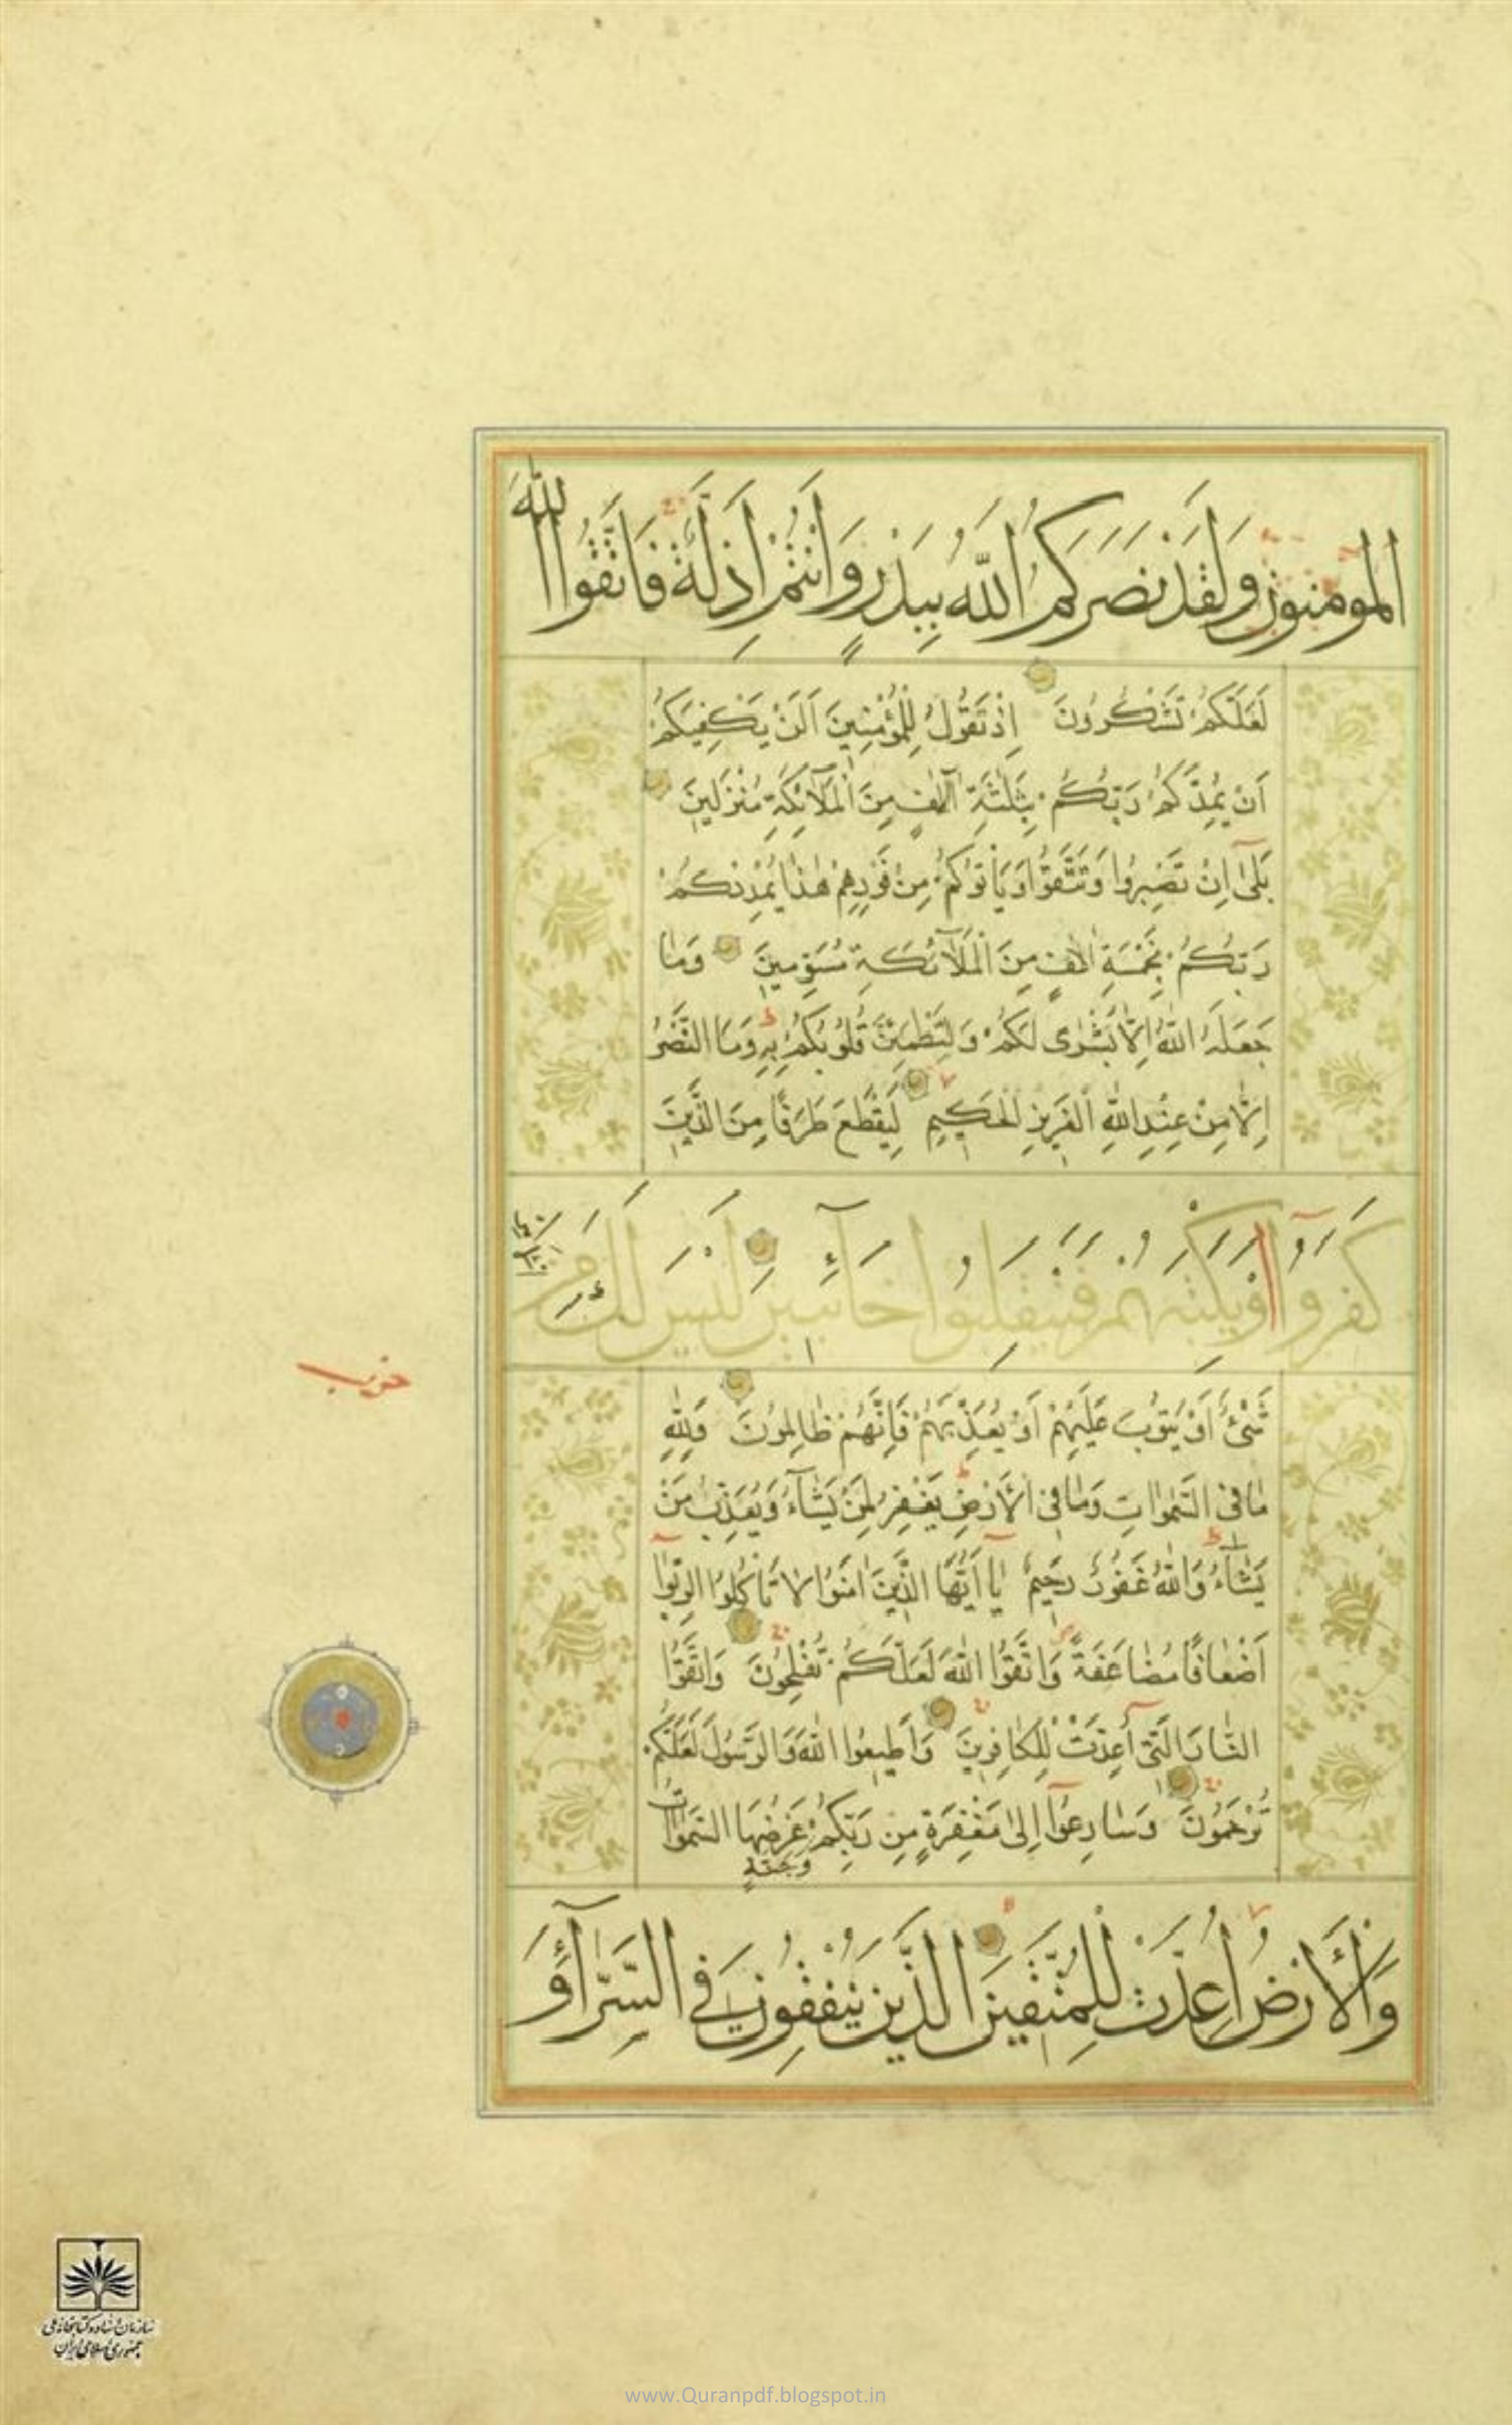 المومنون وَلَقَدْ نَصَرَكُمُ اللَّهُ بِبَدْرٍ وَأَنْتُمْ أَذِلَّةٌ فَاتَّقُوا اللَّهَ
لَعَلَّكُمْ تَشْكُرُونَ اِذْ تَقُولُ لِلْمُؤْمِنِينَ اَلَنْ يَكْفِيَكُمْ
اَنْ يُمِدَّكُمْ رَبُّكُمْ بِثَلٰثَةِ اٰلٰافٍ مِنَ الْمَلَآئِكَةِ مُنْزَلِينَ
بَلٰى اِنْ تَصْبِرُوا وَتَتَّقُوا وَيَأْتُوكُمْ مِنْ فَوْرِهِمْ هٰذَا يُمْدِدْكُمْ
رَبُّكُمْ بِخَمْسَةِ اٰلٰفٍ مِنَ الْمَلَآئِكَةِ مُسَوِّمِينَ وَمَا
جَعَلَهُ اللّٰهُ اِلَّا بُشْرٰى لَكُمْ وَلِتَطْمَئِنَّ قُلُوبُكُمْ بِهِ وَمَا النَّصْرُ
اِلَّا مِنْ عِنْدِ اللّٰهِ الْعَزِيزِ الْحَكِيمِ لِيَقْطَعَ طَرَفًا مِنَ الَّذِينَ
كَفَرُوا اَوْ يَكْبِتَهُمْ فَيَنْقَلِبُوا خَآئِبِينَ لَيْسَ لَكَ مِنَ الْاَمْرِ
حزب
شَىْءٌ اَوْ يَتُوبَ عَلَيْهِمْ اَوْ يُعَذِّبَهُمْ فَاِنَّهُمْ ظَالِمُونَ وَلِلّٰهِ
مَا فِى السَّمٰوَاتِ وَمَا فِى الْاَرْضِ يَغْفِرُ لِمَنْ يَشَآءُ وَيُعَذِّبُ مَنْ
يَشَآءُ وَاللّٰهُ غَفُورٌ رَحِيمٌ يَا اَيُّهَا الَّذِينَ اٰمَنُوا لَا تَأْكُلُوا الرِّبٰوا
اَضْعَافًا مُضَاعَفَةً وَاتَّقُوا اللّٰهَ لَعَلَّكُمْ تُفْلِحُونَ وَاتَّقُوا
النَّارَ الَّتِى اُعِدَّتْ لِلْكَافِرِينَ وَاَطِيعُوا اللّٰهَ وَالرَّسُولَ لَعَلَّكُمْ
تُرْحَمُونَ وَسَارِعُوا اِلٰى مَغْفِرَةٍ مِنْ رَبِّكُمْ وَجَنَّةٍ عَرْضُهَا السَّمٰوَاتُ
وَالْأَرْضُ اُعِدَّتْ لِلْمُتَّقِينَ الَّذِينَ يُنْفِقُونَ فِي السَّرَّآءِ وَ
سازمان اسناد و کتابخانه ملی
جمهوری اسلامی ایران
www.Quranpdf.blogspot.in